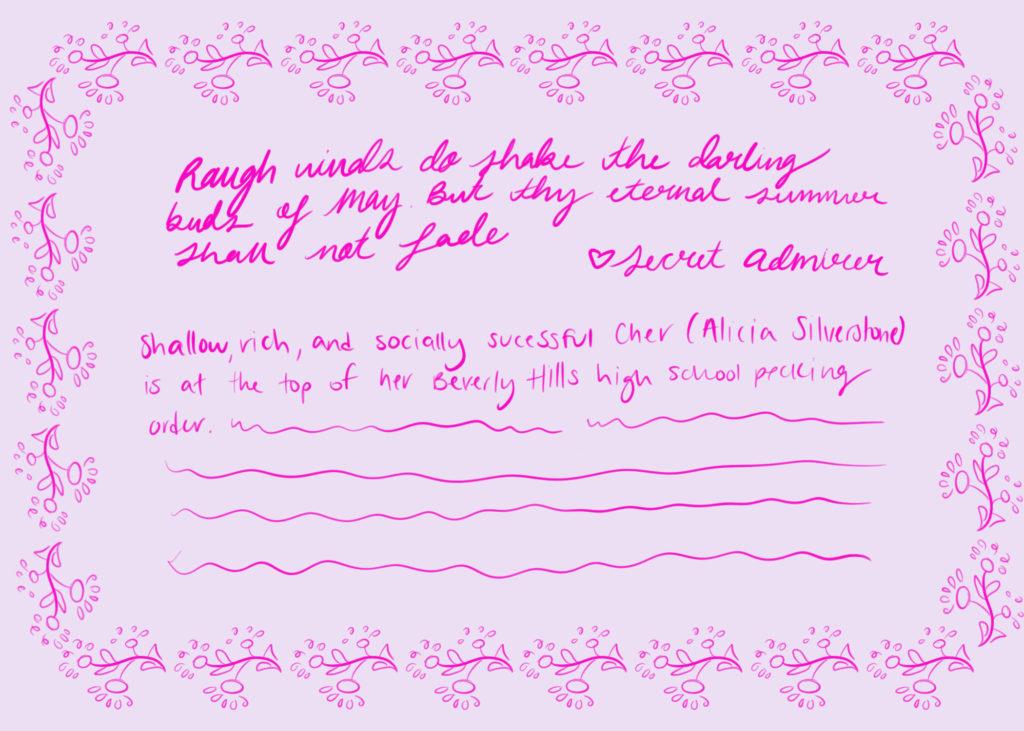 Rough winds do shake the darling
buds of May. But thy eternal summer
shall not fade
♡ secret admirer
Shallow, rich, and socially sucessful Cher (Alicia Silverstone)
is at the top of her Beverly Hills high school pecking
order.